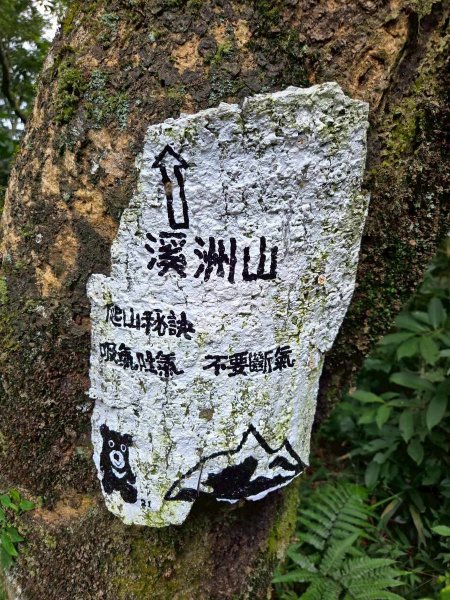 溪洲山
爬山秘訣
吸氣吐氣 不要斷氣